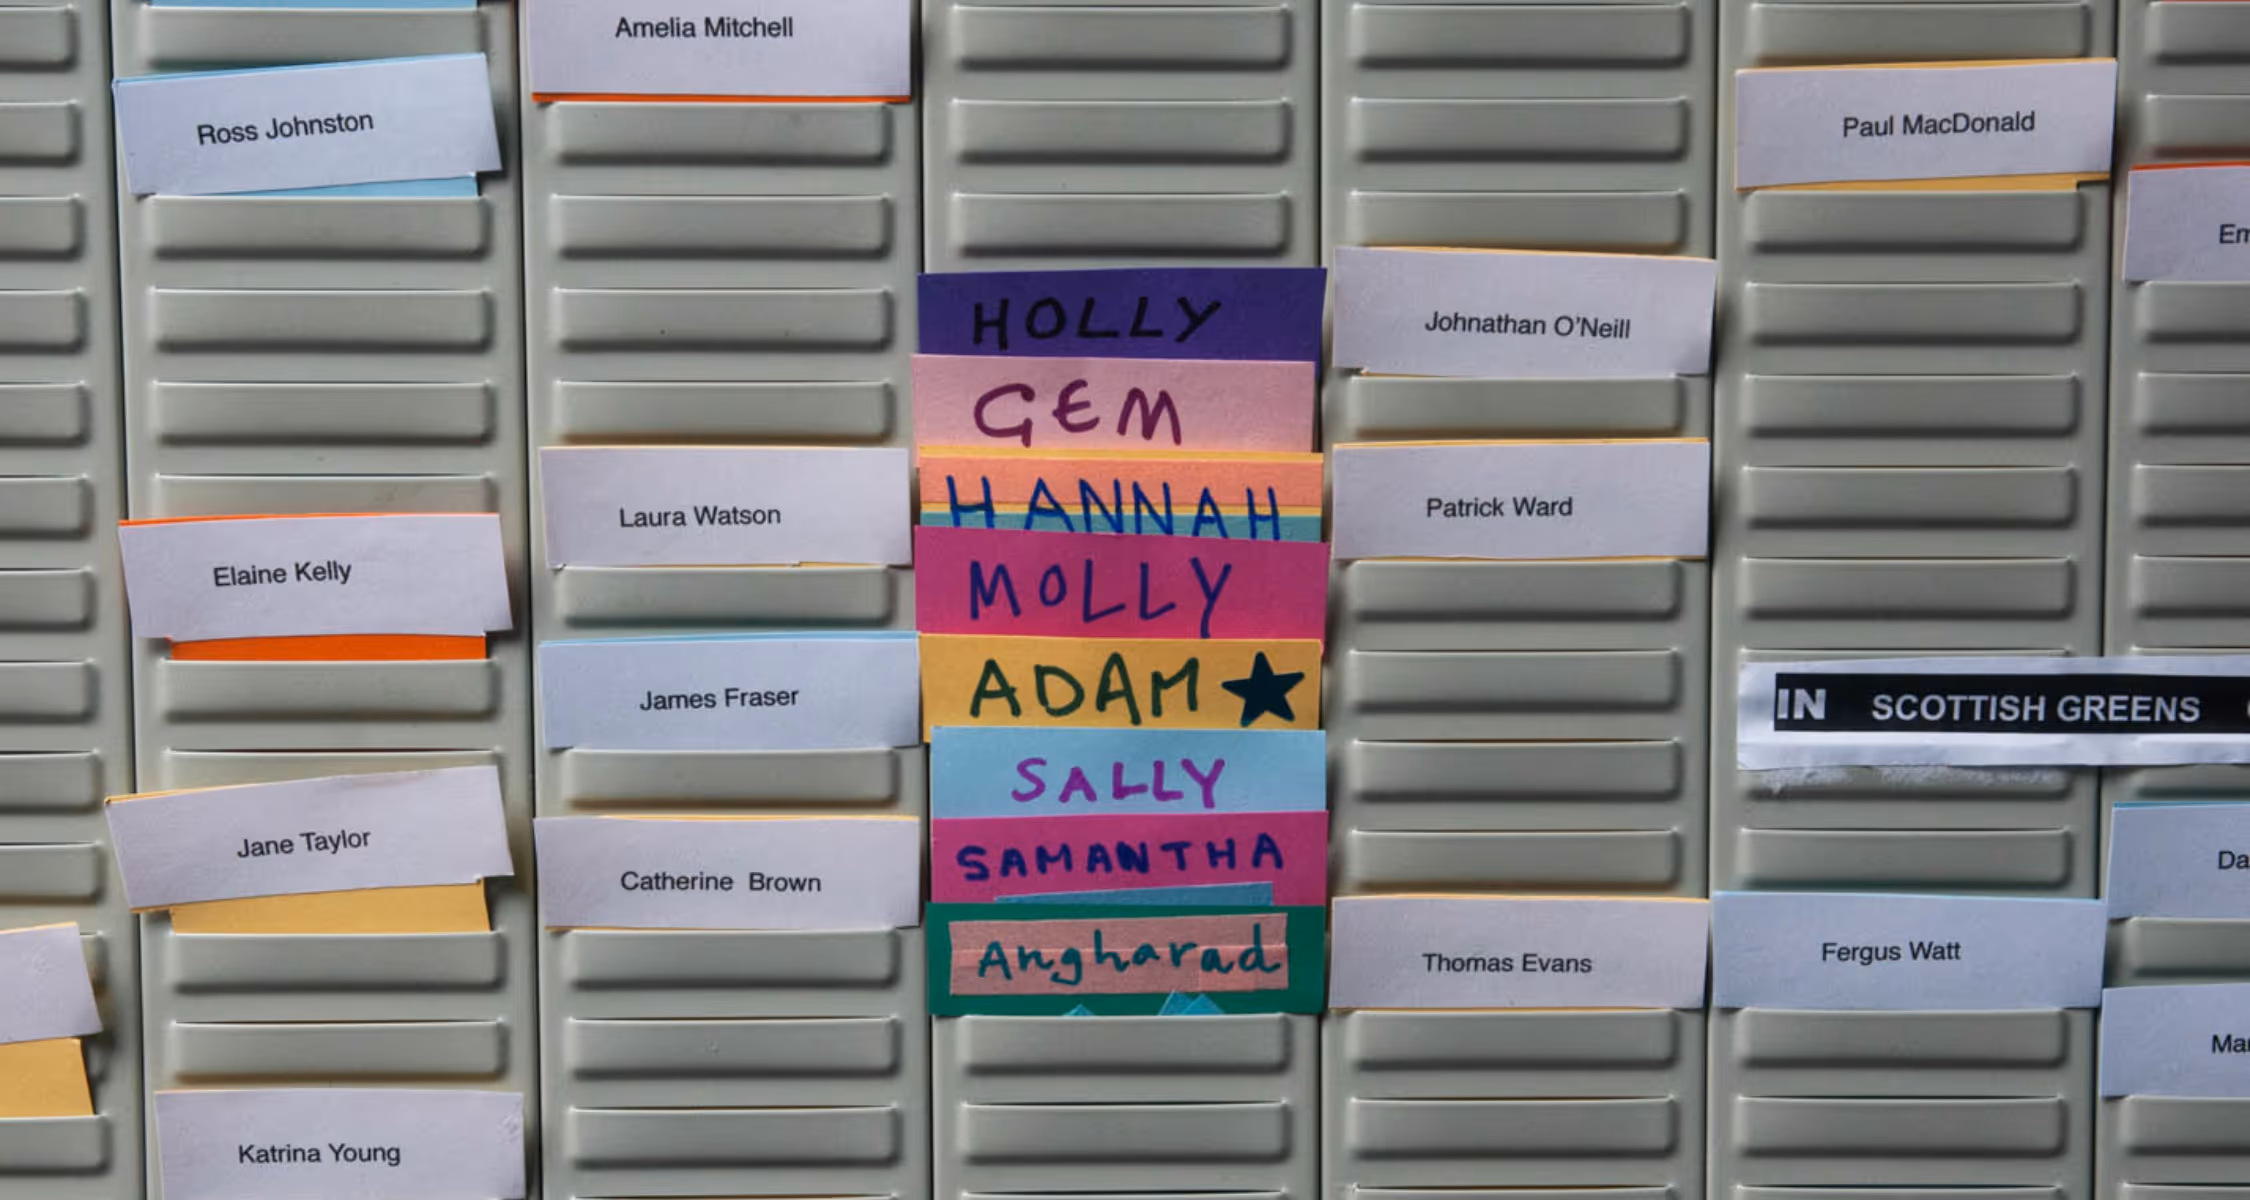 Ross Johnston
Elaine Kelly
Jane Taylor
Katrina Young
Amelia Mitchell
Laura Watson
James Fraser
Catherine Brown
HOLLY
GEM
HANNAH
MOLLY
ADAM
SALLY
SAMANTHA
Angharad
Johnathan O'Neill
Patrick Ward
Thomas Evans
Paul MacDonald
IN SCOTTISH GREENS
Fergus Watt